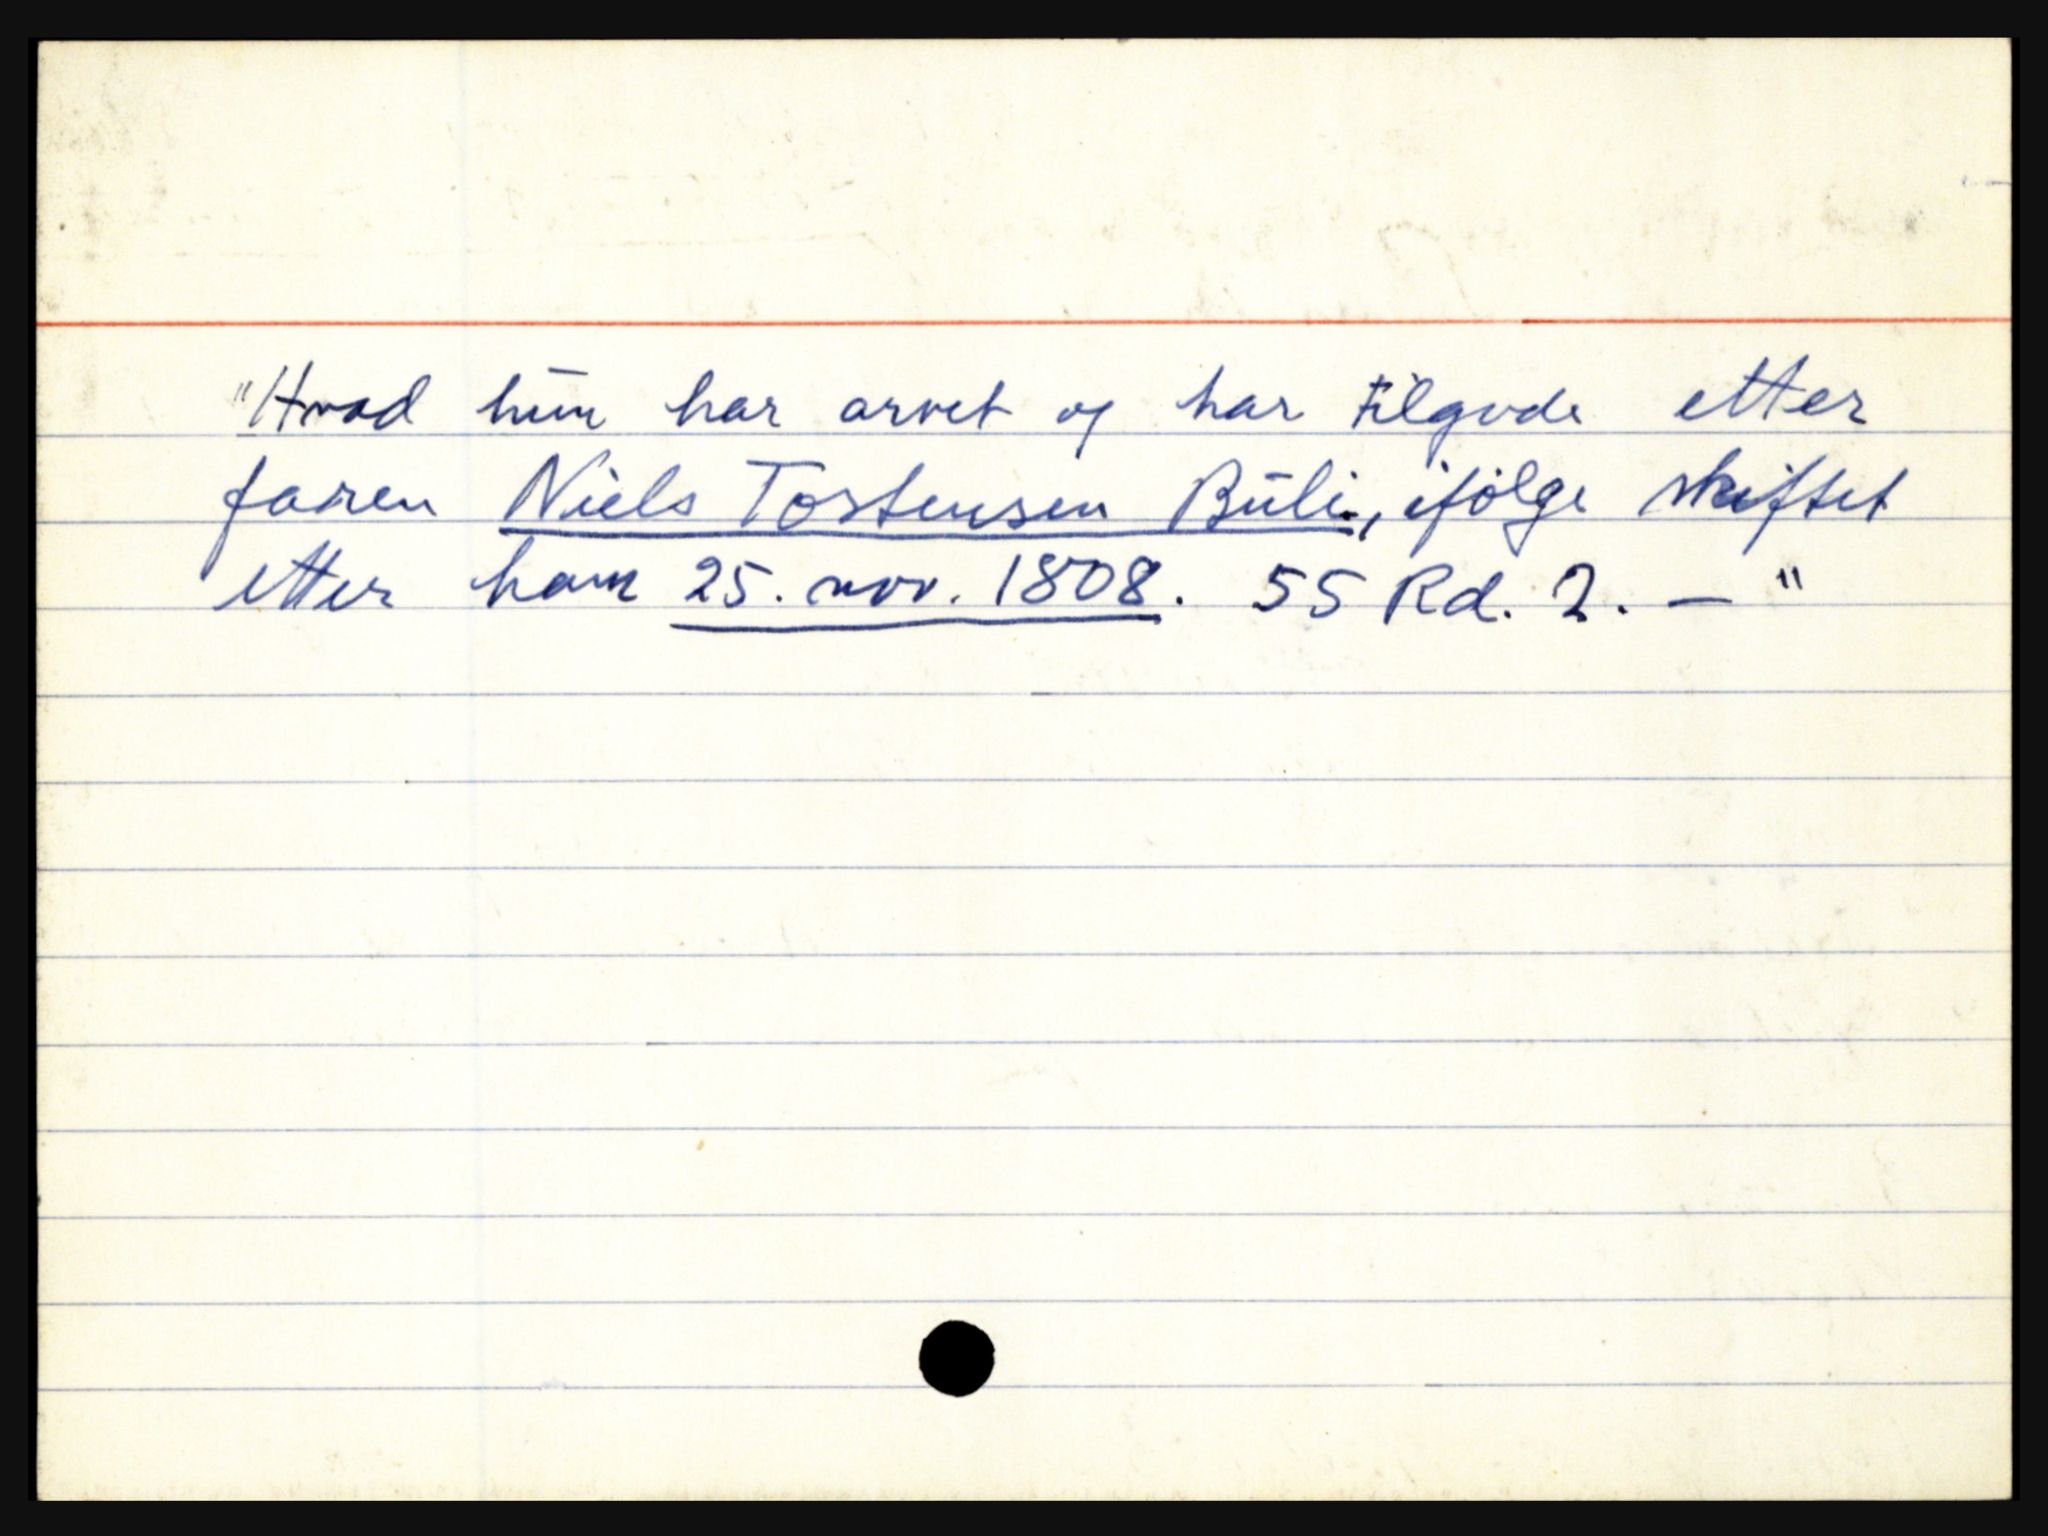 "Hvad hun har arvet og har tilgode etter
faren Niels Tostensen Buli, ifölge skiftet
etter ham 25. nov. 1808. 55 Rd. 2. — "